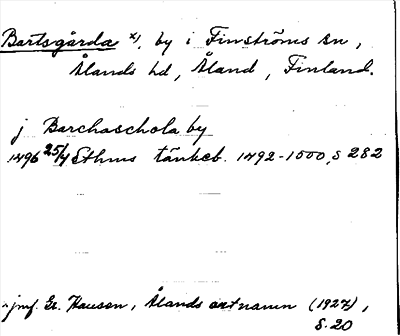 Bartsgårda x), by i Finströms sn,
Ålands hd, Åland, Finland.
j Barchaschola by
1496 25/4 Sthms tänkeb. 1492-1500, s 282
x) jmf. Gr. Hausen, Ålands ortnamn (1927),
s. 20